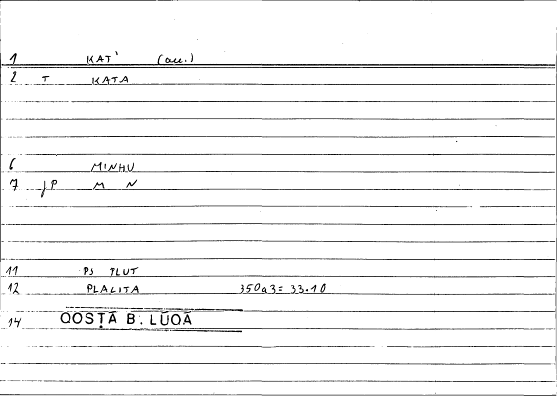 1 KAT' (acc.)
2 T KATA
6 MINHU
7 JP M N
11 PS PLUT
12 PLALITA 350a3= 33.10
14 QOSṬĀ B. LŪQĀ